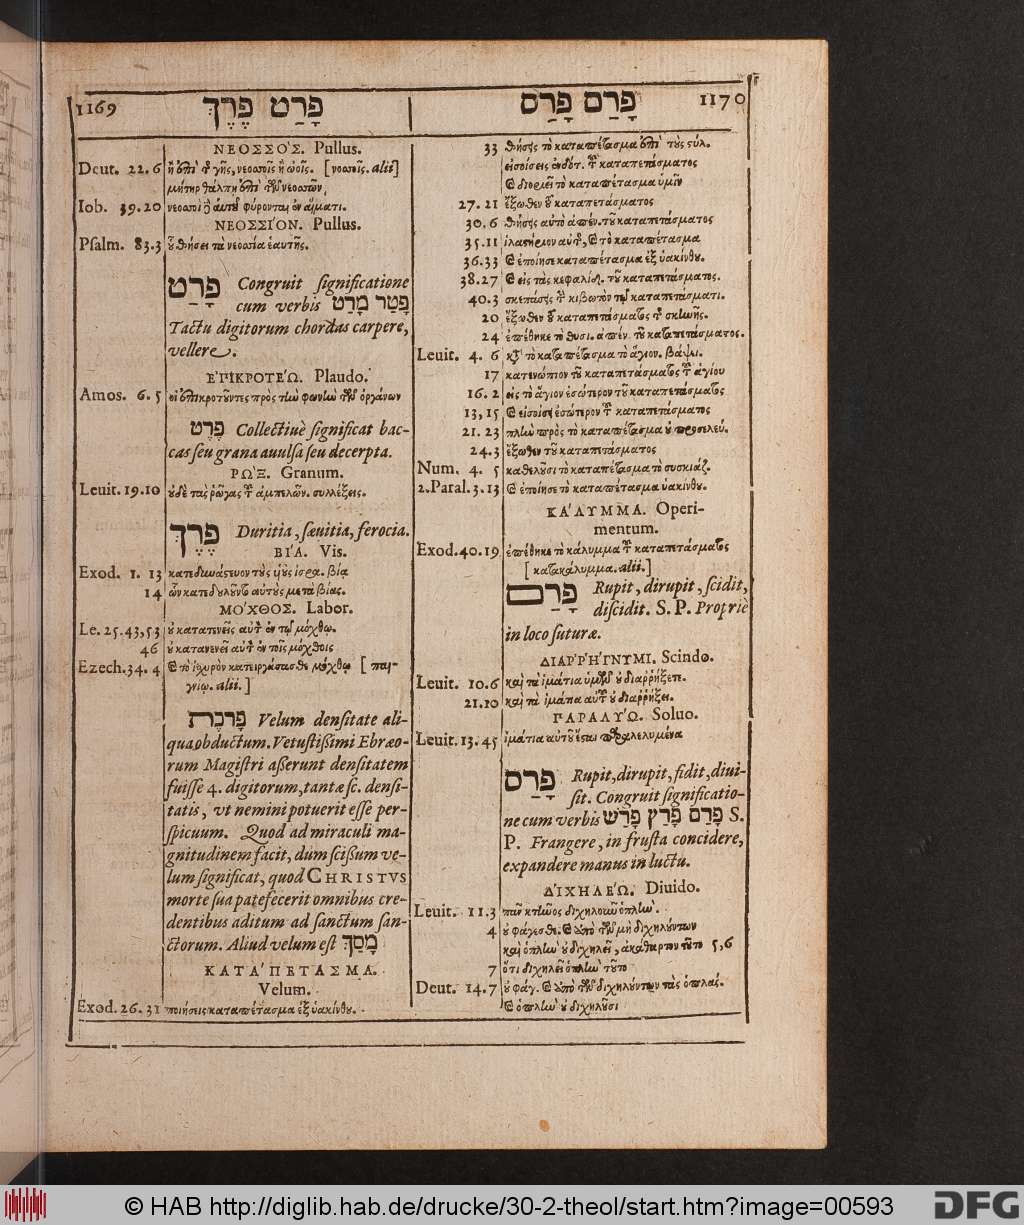 1169 פָּרַט פֶּרֶךְ
ΝΕΟΣΣΟ'Σ. Pullus.
Deut. 22. 6 ἢ ἐπὶ τ͂ γῆς, νεοσσοῖς ἢ ὠοῖς. [νοσσοῖς. alii]
μήτηρ θάλπῃ ἐπὶ τῶν νεοσσῶν
Iob. 39.20 νεοσσοὶ δὲ αὐτοῦ φύρονται ἐν αἵματι.
ΝΕΟΣΣΙ'ΟΝ. Pullus.
Psalm. 83.3 οὗ θήσει τὰ νεοσσία ἑαυτῆς.
פָּרַט Congruit significatione
cum verbis פָּטַר מָרַט
Tactu digitorum chordas carpere,
vellere.
ἘΠΙΚΡΟΤΕ'Ω. Plaudo.
Amos. 6. 5 οἱ ἐπικροτοῦντες πρὸς τὴν φωνὴν τῶν ὀργάνων
פֶּרֶט Collectiuè significat bac-
cas seu grana auulsa seu decerpta.
ΡΩ'Ξ. Granum.
Leuit. 19.10 οὐδὲ τὰς ῥῶγας τ͂ ἀμπελῶν. συλλέξεις.
פֶּרֶךְ Duritia, sæuitia, ferocia.
ΒΙ'Α. Vis.
Exod. 1. 13 κατεδυνάστευον τοὺς υἱοὺς ἰσρα. βίᾳ
14 ὧν κατεδουλοῦντο αὐτοὺς μετὰ βίας.
ΜΟ'ΧΘΟΣ. Labor.
Le. 25.43,53 οὐ κατατενεῖς αὐτ͂ ἐν τῷ μόχθῳ.
46 οὐ κατατενεῖ αὐτ͂ ἐν τοῖς μόχθοις
Ezech.34. 4 καὶ τὸ ἰσχυρὸν κατειργάσασθε μόχθῳ [ παι-
γνίῳ. alii.]
פָּרֹכֶת Velum densitate ali-
qua obductum. Vetustißimi Ebræo-
rum Magistri aßerunt densitatem
fuisse 4. digitorum, tantæ sc. densi-
tatis, vt nemini potuerit esse per-
spicuum. Quod ad miraculi ma-
gnitudinem facit, dum scißum ve-
lum significat, quod CHRISTVS
morte sua patefecerit omnibus cre-
dentibus aditum ad sanctum san-
ctorum. Aliud velum est מָסָךְ
ΚΑΤΑΠΕ'ΤΑΣΜΑ.
Velum.
Exod. 26. 31 ποιήσεις καταπέτασμα ἐξ ὑακίνθου.
פָּרַם פָּרַס 1170
33 θήσεις τὸ καταπέτασμα ἐπὶ τοὺς στύλ.
εἰσοίσεις ἐνδότ. τ͂ καταπετάσματος
καὶ διοριεῖ τὸ καταπέτασμα ὑμῖν
27. 21 ἔξωθεν τοῦ καταπετάσματος
30. 6 θήσεις αὐτὸ ἀπέν. τοῦ καταπετάσματος
35.11 ἱλαστήριον αὐτ͂, καὶ τὸ καταπέτασμα
36.33 καὶ ἐποίησε καταπέτασμα ἐξ ὑακίνθου.
38.27 καὶ εἰς τὰς κεφαλίδ. τοῦ καταπετάσματος.
40.3 σκεπάσεις τ͂ κιβωτὸν τῷ καταπετάσματι.
20 ἔξωθεν τοῦ καταπετάσματος τ͂ σκηνῆς.
24 ἐπέθηκε τὸ θυσι. ἀπέν. τοῦ καταπετάσματος.
Leuit. 4. 6 κτ͂ τὸ καταπέτασμα τὸ ἅγιον. βάψει.
17 κατενώπιον τοῦ καταπετάσματος τ͂ ἁγίου
16. 2 εἰς τὸ ἅγιον ἐσώτερον τοῦ καταπετάσματος
13, 15 καὶ εἰσοίσει ἐσώτερον τ͂ καταπετάσματος
21. 23 πλὴν πρὸς τὸ καταπέτασμα οὐ προσελεύ.
24.3 ἔξωθεν τοῦ καταπετάσματος
Num. 4. 5 καθελοῦσι τὸ καταπέτασμα τὸ συσκιάζ.
2.Paral. 3. 13 καὶ ἐποίησε τὸ καταπέτασμα ὑακίνθου.
ΚΑ'ΛΥΜΜΑ. Operi-
mentum.
Exod.40.19 ἐπέθηκε τὸ κάλυμμα τ͂ καταπετάσματος
[ κατακάλυμμα. alii.]
פָּרַם Rupit, dirupit, scidit,
discidit. S. P. Propriè
in loco suturæ.
ΔΙΑΡ'ΡΗ'ΓΝΥΜΙ. Scindo.
Leuit. 10.6 καὶ τὰ ἱμάτια ὑμῶν οὐ διαρρήξετε.
21.10 καὶ τὰ ἱμάτια αὐτ͂ οὐ διαρρήξει.
ΠΑΡΑΛΥ'Ω. Soluo.
Leuit. 13. 45 ἱμάτια αὐτοῦ ἔσται παραλελυμένα
פָּרַס Rupit, dirupit, fidit, diui-
sit. Congruit significatio-
ne cum verbis פָּרַם פָּרַץ פָּרַשׁ S.
P. Frangere, in frusta concidere,
expandere manus in luctu.
ΔΙΧΗΛΕ'Ω. Diuido.
Leuit. 11.3 πᾶν κτῆνος διχηλοῦν ὁπλὴν.
4 οὐ φάγεσθε. καὶ ἀπὸ τῶν μὴ διχηλούντων
καὶ ὁπλὴν οὐ διχηλεῖ, ἀκάθαρτον τοῦτο 5, 6
7 ὅτι διχηλεῖ ὁπλὴν τοῦτο
Deut. 14. 7 οὐ φάγ. καὶ ἀπὸ τῶν διχηλούντων τὰς ὁπλάς.
καὶ ὁπλὴν οὐ διχηλοῦσι
© HAB http://diglib.hab.de/drucke/30-2-theol/start.htm?image=00593
DFG